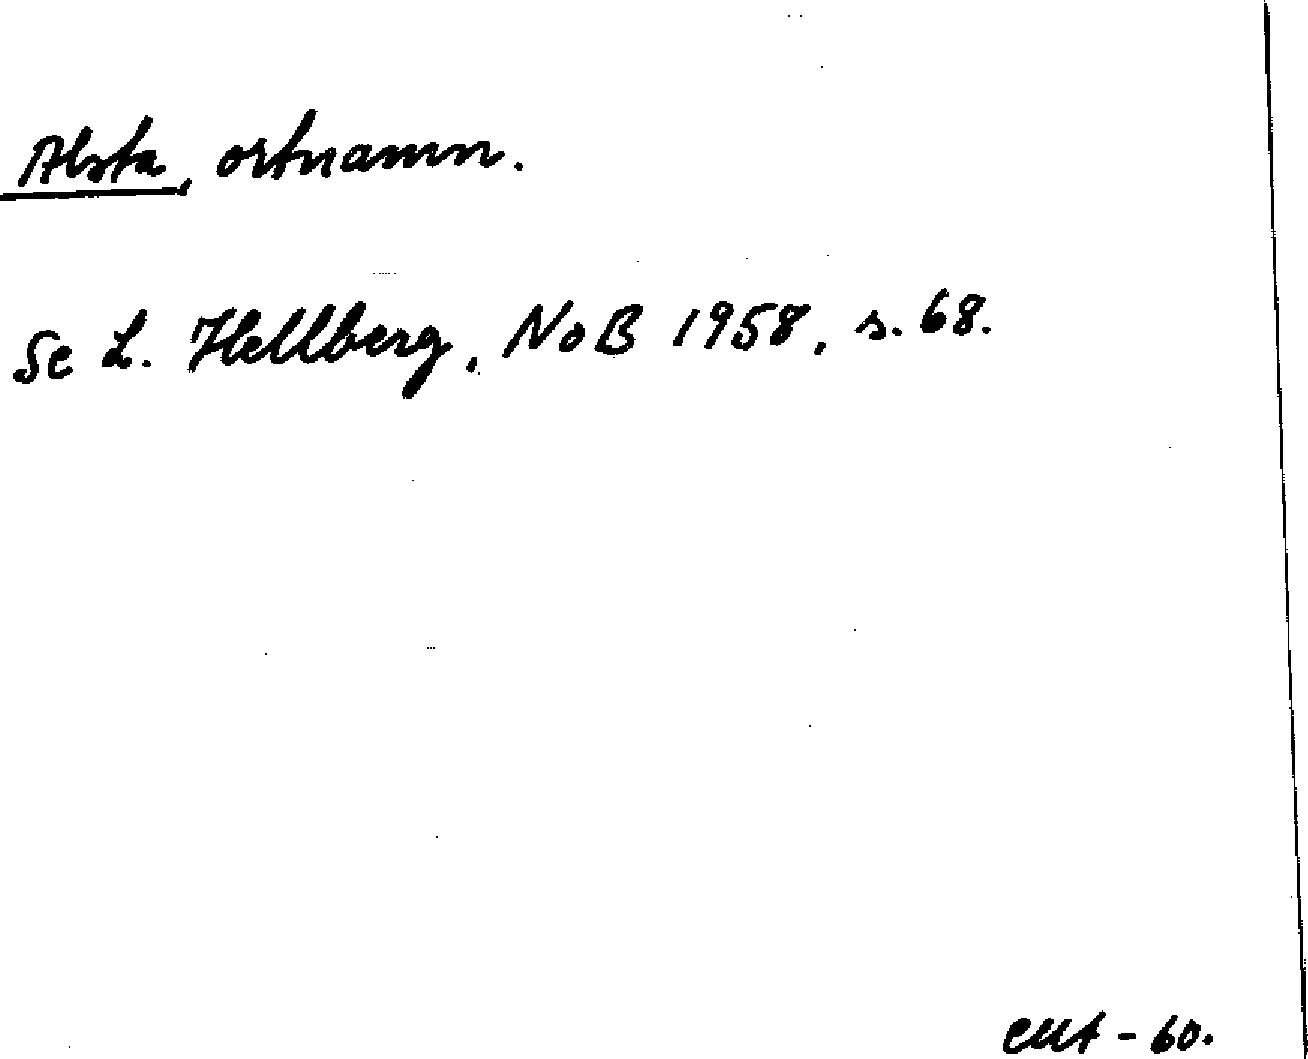 Alsta, ortnamn.
Se L. Hellberg, NoB 1958, s. 68.
-60.